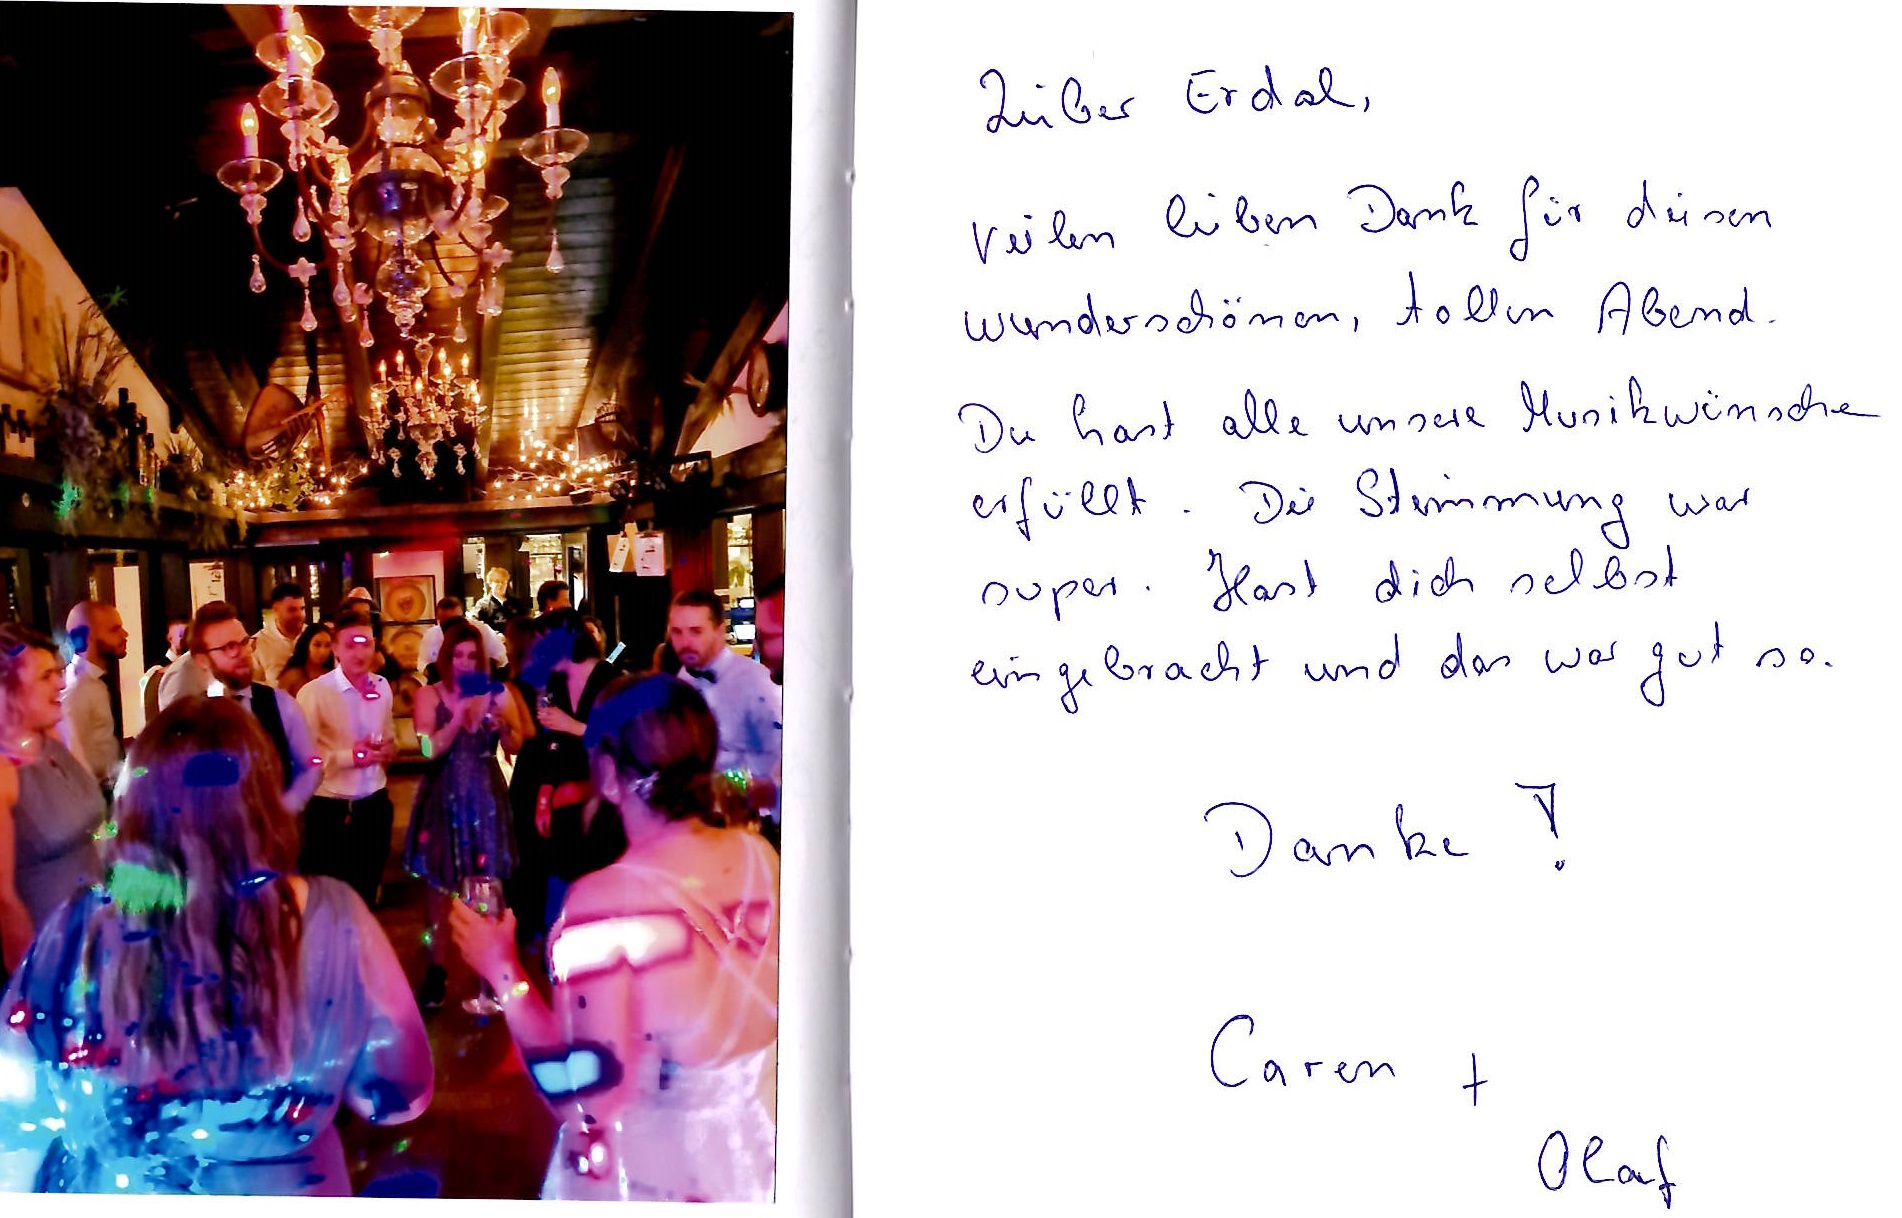 Lieber Erdal,
vielen lieben Dank für diesen
wunderschönen, tollen Abend.
Du hast alle unsere Musikwünsche
erfüllt. Die Stimmung war
super. Hast dich selbst
eingebracht und das war gut so.
Danke!
Caren +
Olaf